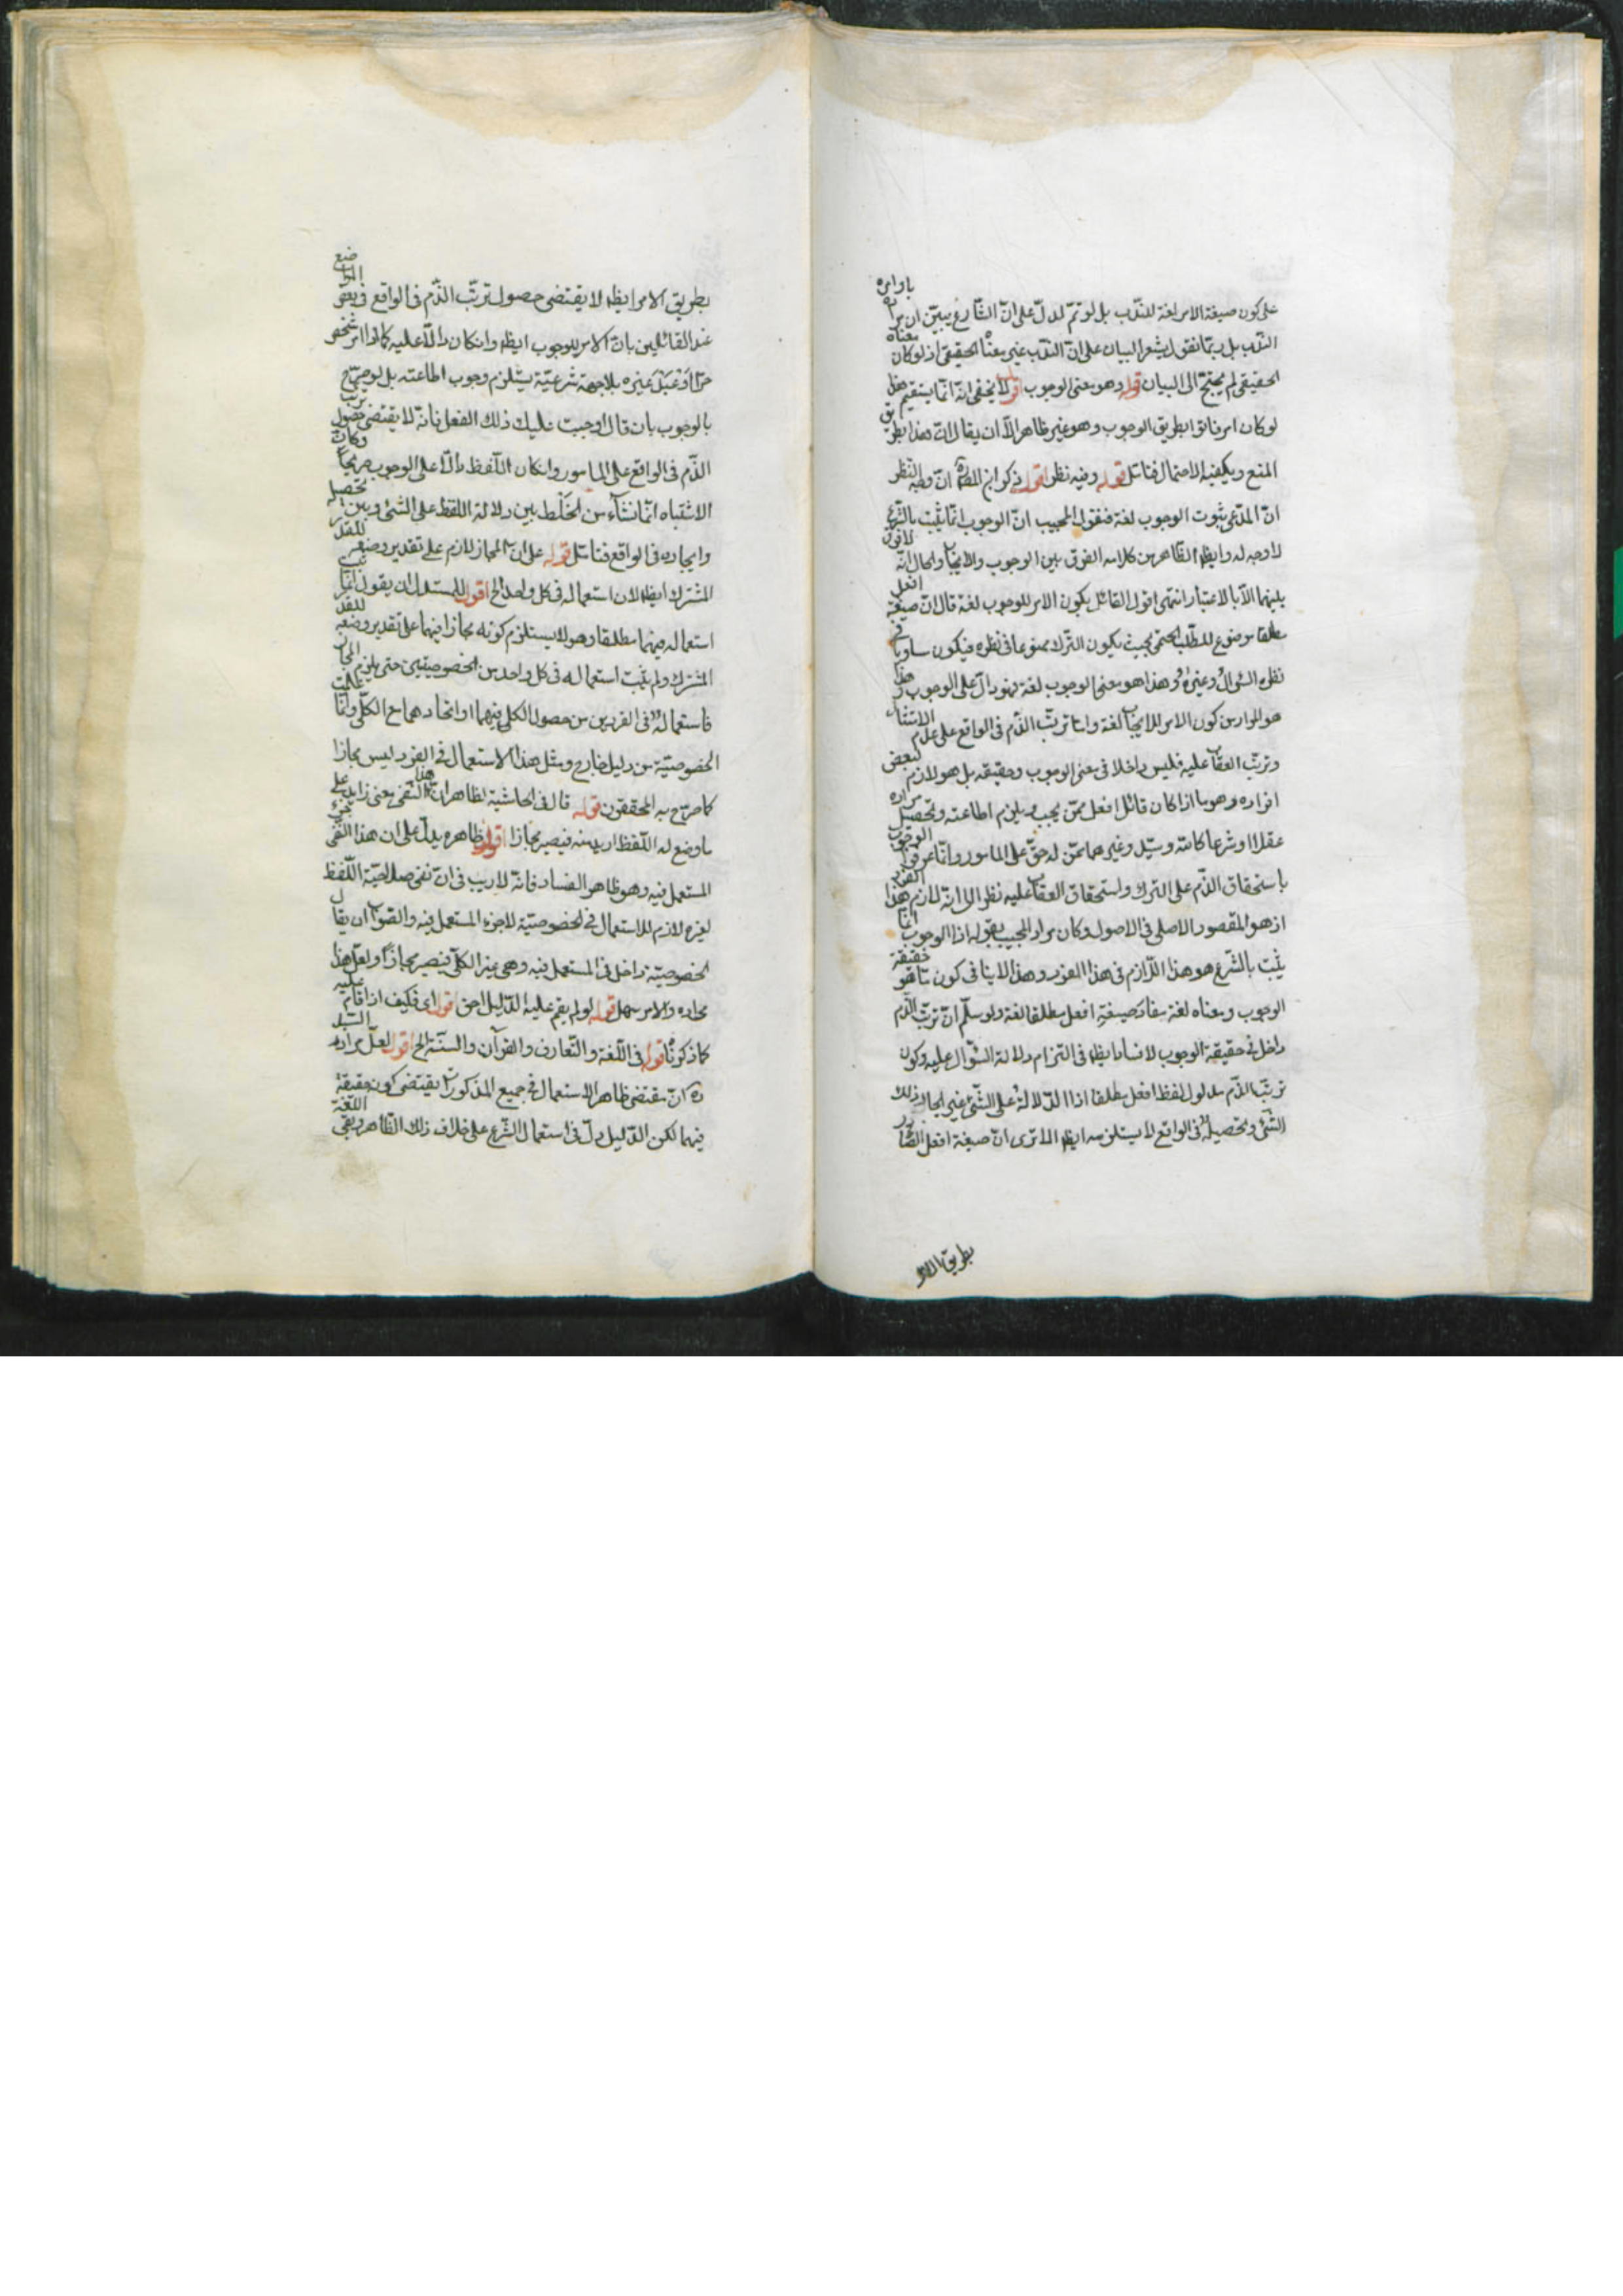 على كون صيغة الامر لغة للندب بل لو تمّ لدلّ على انّ الشارع يبيّن ان مراده باوامره
الندب بل ربّما نقول يشعر البيان على انّ الندب غير معناه الحقيقى اذ لو كان معناه
الحقيقى لم يحتج الى البيان قوله وهو معنى الوجوب اقول لا يخفى انّه انّما يستقيم هذا
لو كان امر فاتوا بطريق الوجوب وهو غير ظاهر الّا ان يقال انّ هذا بطريق
المنع ويكفيه الاحتمال فتامّل قوله وفيه نظر اقول ذكر ابن المص ره انّ وجه النظر
انّ المدّعى ثبوت الوجوب لغة فنقول المجيب انّ الوجوب انّما يثبت بالشرع
لا وجه له وايضا الظاهر من كلامه الفرق بين الوجوب والايجاب والحال انّه لا فرق
بينهما الّا بالاعتبار انتهى اقول القائل بكون الامر للوجوب لغة قال انّ صيغة افعل
مطلقا موضوع للطلب الحتمى بحيث يكون الترك ممنوعا فى نظره فيكون مساويا فى
نظره السؤال وغيره وهذا هو معنى الوجوب لغة فهو دالّ على الوجوب وهذا
هو المراد من كون الامر للايجاب لغة وامّا ترتّب الذّم فى الواقع على عدم الانتفاء
وترتّب العقاب عليه فليس داخلا فى معنى الوجوب وحقيقته بل هو لازم لبعض
افراده وهو ما اذا كان قائل افعل ممّن يجب ويلزم اطاعته وتحصيل مراده
عقلا او شرعا كالله وسيّد وغيرهما ممّن له حقّ على المامور وانّما عرفوا الوجوب
باستحقاق الذّم على الترك واستحقاق العقاب عليه نظرا الى انّه لازم هذا الفرد
اذ هو المقصود الاصلى فى الاصول وكان مراد المجيب بقوله اذ الوجوب انّما
يثبت بالشرع هو هذا اللازم فى هذا الفرد وهذا لا ينافى كون ما هو حقيقة
الوجوب ومعناه لغة مفاد صيغة افعل مطلقا لغة ولو سلّم انّ ترتّب الذّم
داخل فى حقيقة الوجوب لانسانا ايضا فى التزام دلالة السؤال عليه وكون
ترتّب الذّم مدلول لفظ افعل مطلقا اذ الدلالة على الشئ غير ايجاد ذلك
الشئ وتحصيله فى الواقع لا يستلزمه ايضا الا ترى انّ صيغة افعل الصّادر
بطريق الامر
بطريق الامر ايضا لا يقتضى حصول ترتّب الذّم فى الواقع فى بعض المواضع
عند القائلين بانّ الامر للوجوب ايضا وان كان دالّا عليه كما اذا امر شخص
حرّا او عبد غيره بلا جهة شرعيّة يستلزم وجوب اطاعته بل لو صرّح
بالوجوب بان قال اوجبت عليك ذلك الفعل فانّه لا يقتضى حصول ترتّب
الذّم فى الواقع على المامور وان كان اللّفظ دالّا على الوجوب صريحا وكان
الاشتباه انّما نشاء من الخَلْط بين دلالة اللفظ على الشئ وبين تحصيله
وايجاده فى الواقع فتامّل قوله على انّ المجاز لازم على تقدير وضعه للقدر
المشترك ايضا لان استعماله فى كل واحد الخ اقول للمستدل ان يقول انّما ثبت
استعماله فيهما مطلقا وهو لا يستلزم كونه مجازا فيهما على تقدير وضعه للقدر
المشترك ولم يثبت استعماله فى كل واحد من الخصوصيتين حتى يلزم المجاز
فاستعماله فى الفردين من حصول الكلى فيهما او اتحادهما مع الكلّى وانّما علمت
الخصوصيّة من دليل خارج ومثل هذا الاستعمال فى الفرد ليس مجازا
كما صرّح به المحققون قوله قال فى الحاشية الظاهر انّ هذا النفى معنى زايد على
ما وضع له اللّفظ اريد منه فيصير مجازا اقول ظاهره يدلّ على ان هذا النفى جزء
المستعمل فيه وهو ظاهر الفساد فانّه لا ريب فى انّ نفى صلاحيّة اللّفظ
لغيره لازم للاستعمال فى الخصوصيّة لا جزء المستعمل فيه والصّواب ان يقال
الخصوصيّة داخل فى المستعمل فيه وهى غير الكلّى فيصير مجازا ولعلّ هذا
مراده والامر سهل قوله لو لم يقم عليه الدّليل الحق اقول اى فكيف اذا قام عليه
كما ذكرنا قوله فى اللّغة والتّعارف والقرآن والسنّة الخ اقول لعلّ مراد السيّد
ره انّ مقتضى ظاهر الاستعمال فى جميع المذكورات يقتضى كونه حقيقة
فيهما لكن الدّليل دلّ فى استعمال الشرع على خلاف ذلك الظاهر وبقى اللّغة